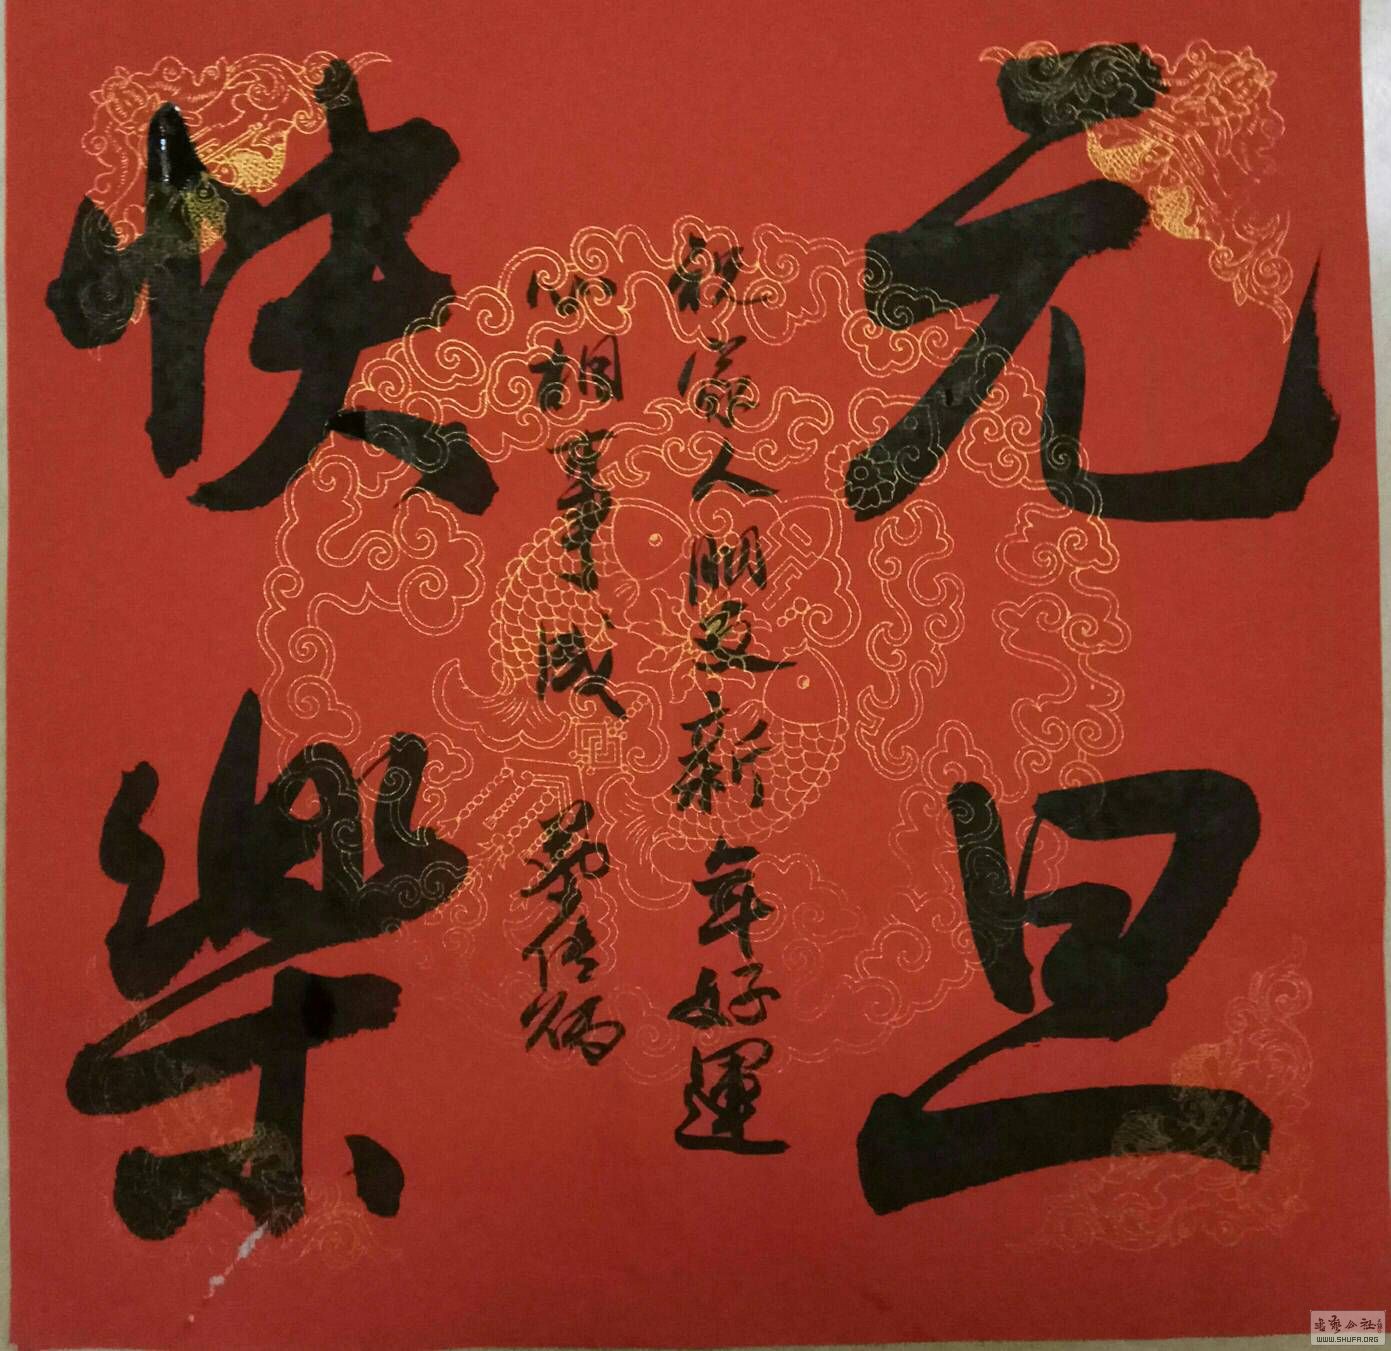 元旦
快樂
祝家人朋友新年好運
心想事成
書藝公社
WWW.SHUFA.ORG